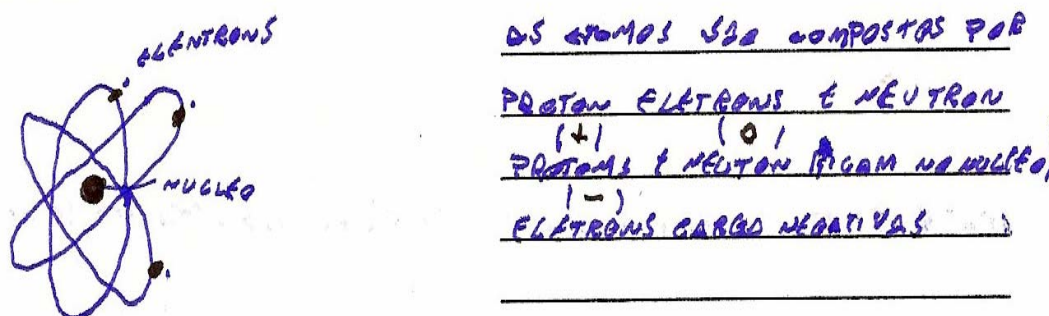 ELENTRONS
NUCLEO
OS ATOMOS SÃO COMPOSTOS POR
PROTON ELETRONS E NEUTRON
(+) (0)
PROTOMS E NEUTON FICAM NO NUCLEO,
(-)
ELETRONS CARGO NEGATIVAS